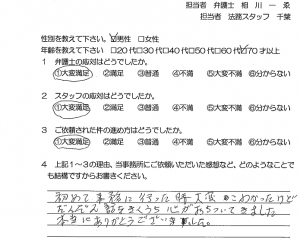 担当者 弁護士 相川一ゑ
担当者 法務スタッフ 千葉
性別を教えて下さい。☑男性 □女性
年齢を教えて下さい □20代□30代□40代□50代□60代☑70才以上
1 弁護士の応対はどうでしたか。
①大変満足 ②満足 ③普通 ④不満 ⑤大変不満 ⑥分からない
2 スタッフの応対はどうでしたか。
①大変満足 ②満足 ③普通 ④不満 ⑤大変不満 ⑥分からない
3 ご依頼された件の進め方はどうでしたか。
①大変満足 ②満足 ③普通 ④不満 ⑤大変不満 ⑥分からない
4 上記1~3の理由、当事務所にご依頼いただいた感想など、どのようなことで
も結構ですからお書きください。
初めて事務に行った時大変こわかったけど
だんだん話をきくうち心がおちついてきました
本当にありがとうございました。